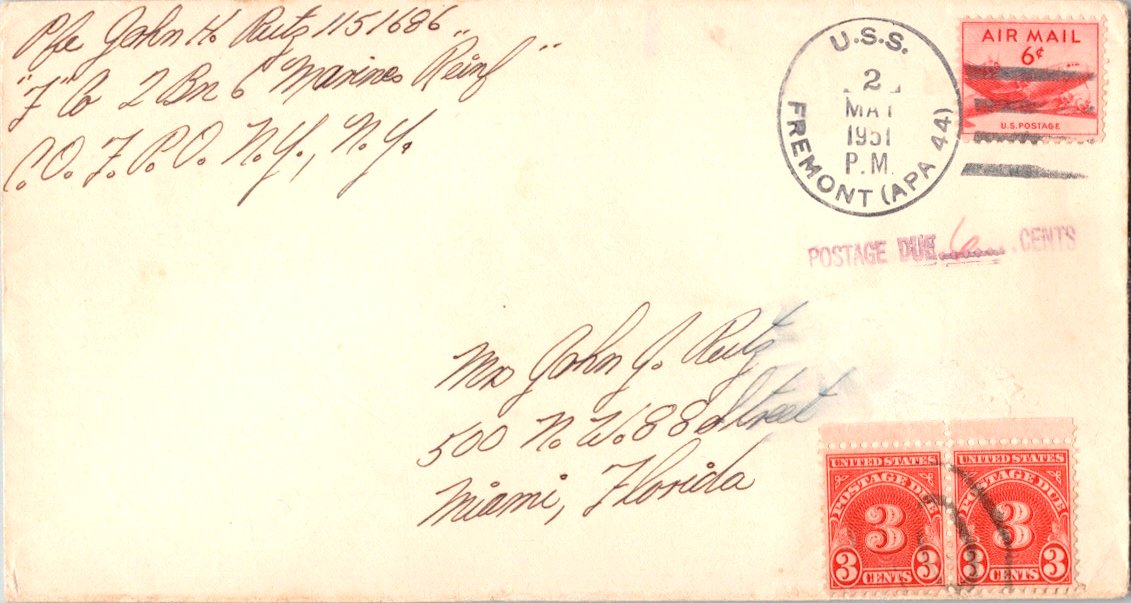 Pfc John H. Rutz 1151686
"F" Co 2 Bn 6" Marines Reinf"
C.O. F.P.O. N.Y., N.Y.
U.S.S.
2
MAY
1951
P.M.
FREMONT (APA 44)
AIR MAIL
6¢
U.S. POSTAGE
POSTAGE DUE 6 CENTS
Mr John J. Rutz
500 N.W. 88 Street
Miami, Florida
UNITED STATES
POSTAGE DUE
3
3 CENTS 3
UNITED STATES
POSTAGE DUE
3
3 CENTS 3